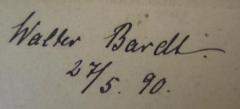 Walter Bardt.
27/5. 90.